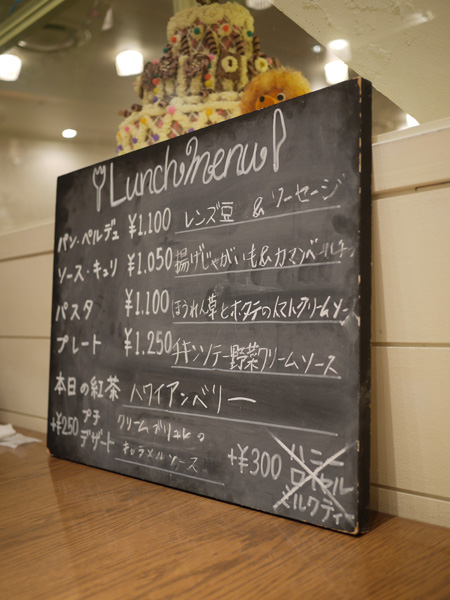 Lunch menu
パン・ペルデュ ¥1.100 レンズ豆 & ソーセージ
ソース・キュリ ¥1.050 揚げじゃがいも&カマンベールチ
パスタ ¥1.100 ほうれん草とホタテのトマトクリームソース
プレート ¥1.250 チキンソテー野菜クリームソース
本日の紅茶 ハワイアンベリー
+¥250 プチデザート クリームブリュレの
キャラメルソース
+¥300 ハニー
ロイヤル
ミルクティ